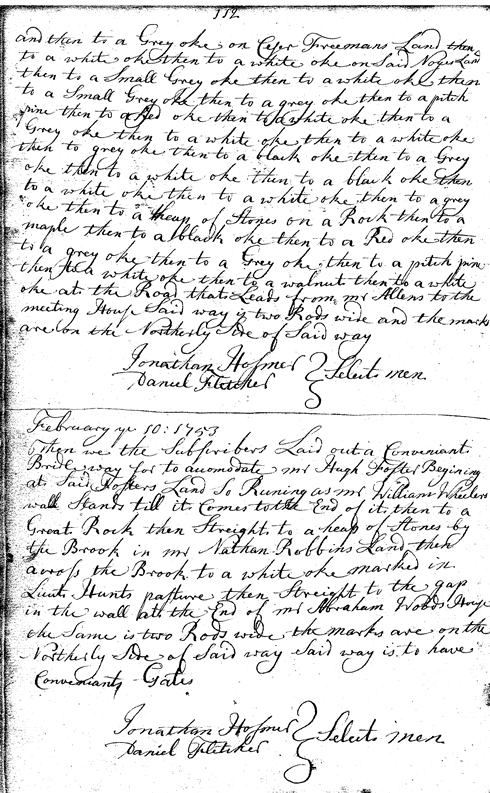 112
and then to a Grey oke on Ceser Freemans Land then
to a white oke then to a white oke on Said Noyes Land
then to a Small Grey oke then to a white oke then
to a Small Grey oke then to a grey oke then to a pitch
pine then to a Red oke then to a white oke then to a
Grey oke then to a white oke then to a white oke
then to grey oke then to a black oke then to a Grey
oke then to a white oke then to a black oke then
to a white oke then to a white oke then to a grey
oke then to a heap of Stones on a Rock then to a
maple then to a black oke then to a Red oke then
to a grey oke then to a Grey oke then to a pitch pine
then to a white oke then to a walnut then to a white
oke at the Road that Leads from mr Allens to the
meeting House Said way is two Rods wide and the marks
are on the Northerly Side of Said way
Jonathan Hosmer } Selects men
Daniel Fletcher
February ye 10: 1753
Then we the Subscribers Laid out a Conveniant
Bridle way for to auomodate mr Hugh Foster Begining
at Said Fosters Land So Runing as mr William Wheelers
wall Stands till it Comes to the End of it then to a
Great Rock then Streight to a heap of Stones by
the Brook in mr Nathan Robbins Land then
across the Brook to a white oke marked in
Lieut Hunts pasture then Streight to the gap
in the wall att the End of mr Abraham Woods House
the Same is two Rods wide the marks are on the
Northerly Side of Said way Said way is to have
Conveniant Gates
Jonathan Hosmer } Selects men
Daniel Fletcher